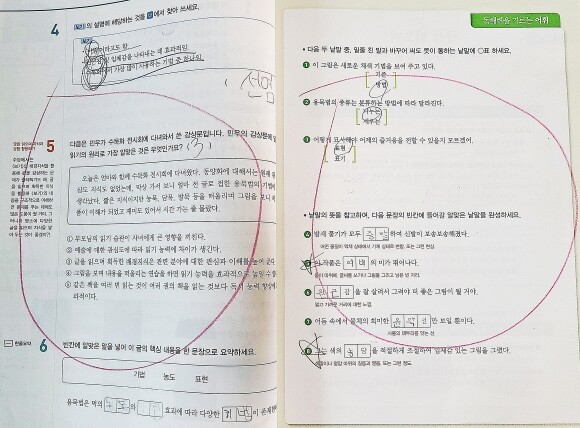 4
보기 의 설명에 해당하는 것을 에서 찾아 쓰세요.
보기
선염
5
다음은 민우가 수묵화 전시회에 다녀와서 쓴 감상문입니다. 민우의 감상문에
읽기의 원리로 가장 알맞은 것은 무엇인가요? (3)
오늘은 엄마와 함께 수묵화 전시회에 다녀왔다. 동양화에 대해서는 원래
심도 지식도 없었는데, 막상 가서 보니 얼마 전 글로 접한 용묵법의 기법
생각났다. 짧은 지식이지만 농묵, 담묵, 발묵 등을 떠올리며 그림을 보니
이 이해가 되었고 재미도 있어서 시간 가는 줄 몰랐다.
① 부모님의 읽기 습관이 자녀에게 큰 영향을 끼친다.
② 예술에 대한 관심도에 따라 읽기 능력에 차이가 생긴다.
③ 글을 읽으며 획득한 배경지식은 관련 분야에 대한 관심과 이해를 높여 준다
④ 그림을 보며 내용을 떠올리는 연습을 하면 읽기 능력을 효과적으로 높일 수
⑤ 같은 책을 여러 번 읽는 것이 여러 권의 책을 읽는 것보다 독서 능력 향상에
과적이다.
한줄요약
6
빈칸에 알맞은 말을 넣어 이 글의 핵심 내용을 한 문장으로 요약하세요.
기법 농도 표현
용묵법은 먹의 농도 와 효과에 따라 다양한 기법 이 존재한
독해력을 기르는 어휘
다음 두 낱말 중, 밑줄 친 말과 바꾸어 써도 뜻이 통하는 낱말에 ○표 하세요.
1 이 그림은 새로운 채색 기법을 보여 주고 있다.
기준
방법
2 용묵법의 종류는 분류하는 방법에 따라 달라진다.
나누는
배우는
3 어떻게 묘사해야 어제의 즐거움을 전할 수 있을지 모르겠어.
표현
표기
낱말의 뜻을 참고하여, 다음 문장의 빈칸에 들어갈 알맞은 낱말을 완성하세요.
4 밤새 물기가 모두 증발 하여 신발이 보송보송해졌다.
어떤 물질이 액체 상태에서 기체 상태로 변함. 또는 그런 현상.
5 이 작품은 여백 의 미가 뛰어나다.
종이 따위에, 글씨를 쓰거나 그림을 그리고 남은 빈 자리.
6 원근감 을 잘 살려서 그려야 더 좋은 그림이 될 거야.
멀고 가까운 거리에 대한 느낌.
7 어둠 속에서 물체의 희미한 윤곽선 만 보일 뿐이다.
사물의 테두리를 잇는 선.
8 색의 농담 을 적절하게 조절하여 입체감 있는 그림을 그렸다.